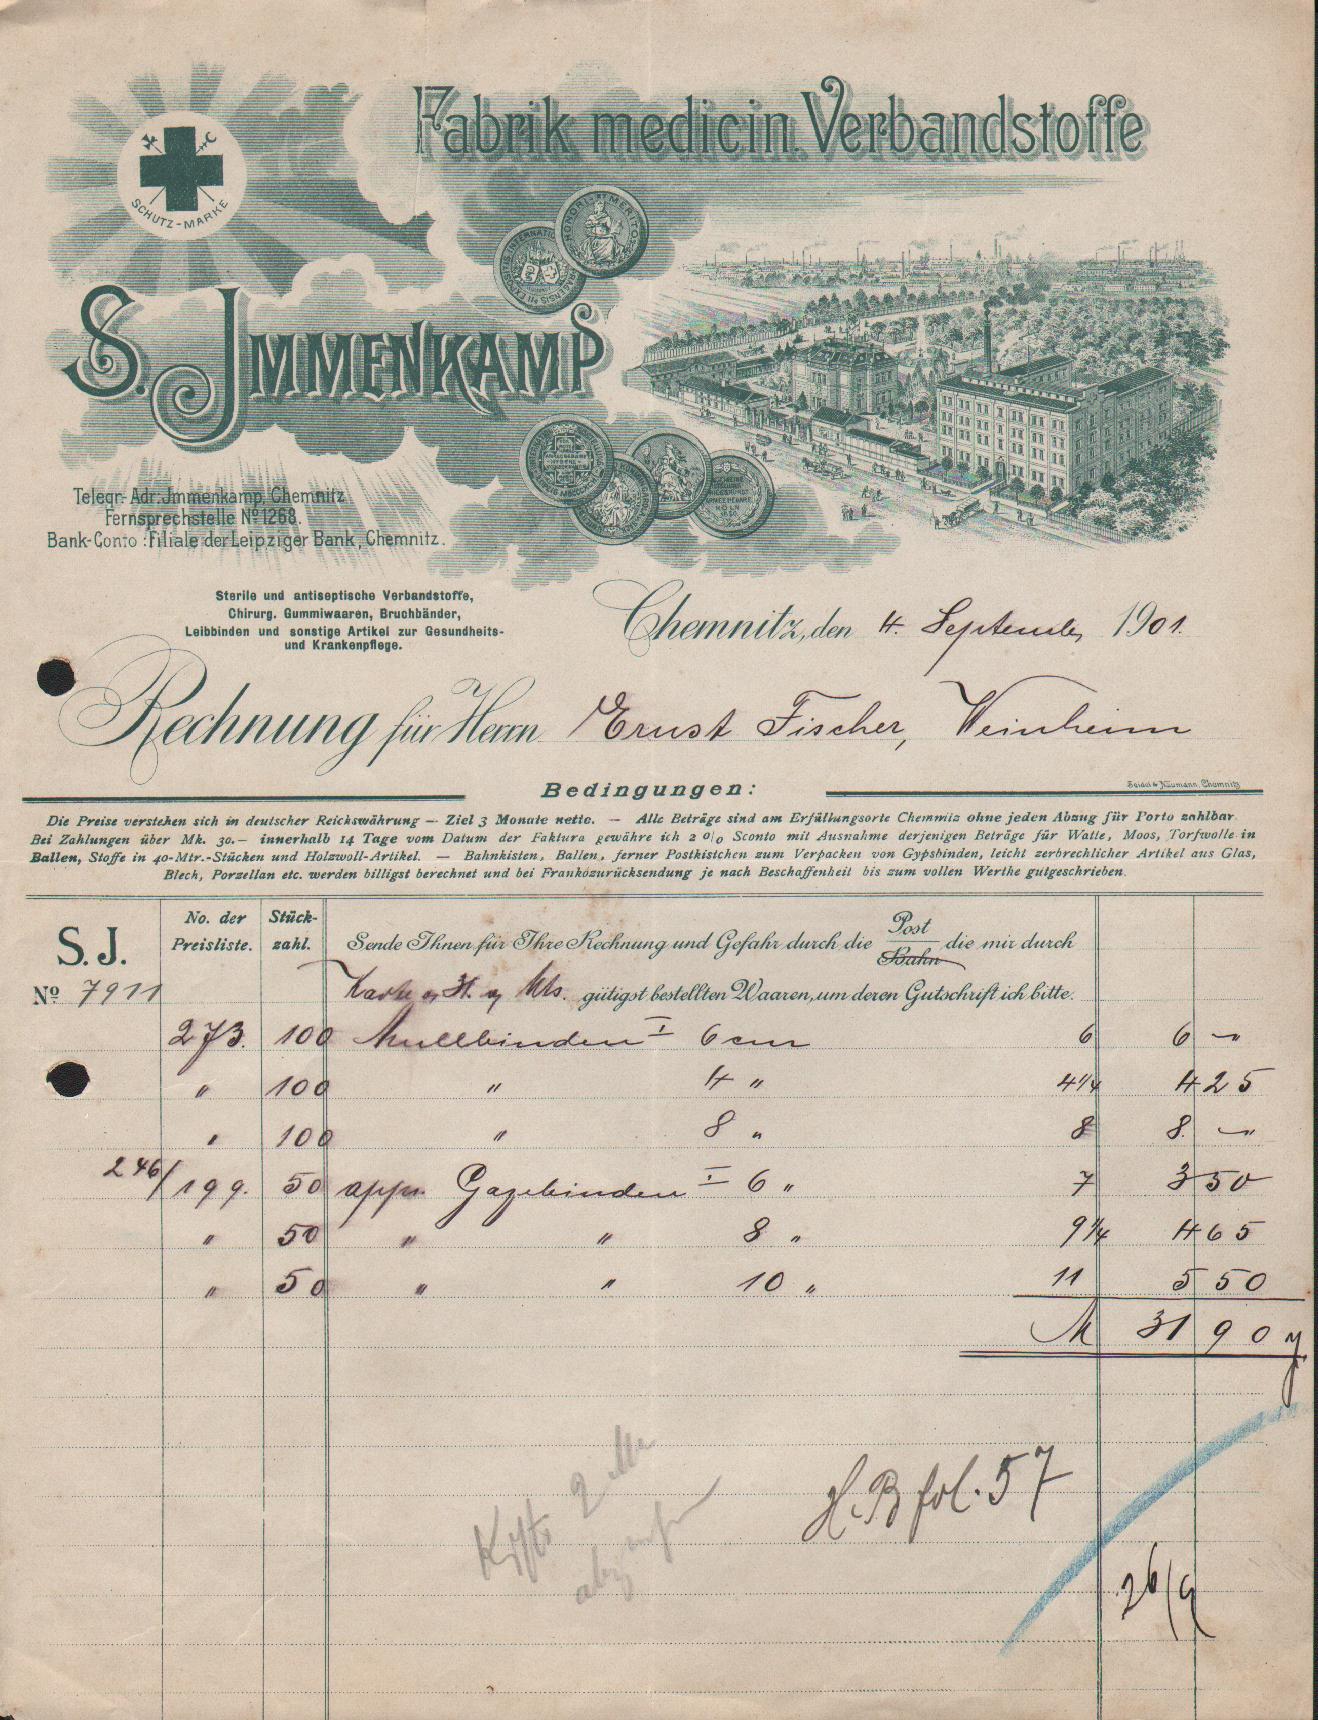 Fabrik medicin. Verbandstoffe
SCHUTZ-MARKE
S. JMMENKAMP
HONORI MERITO
Telegr.-Adr: Jmmenkamp, Chemnitz.
Fernsprechstelle No 1268.
Bank-Conto: Filiale der Leipziger Bank, Chemnitz.
Sterile und antiseptische Verbandstoffe,
Chirurg. Gummiwaaren, Bruchbänder,
Leibbinden und sonstige Artikel zur Gesundheits-
und Krankenpflege.
Chemnitz, den 4. September 1901.
Rechnung für Herrn Ernst Fischer, Weinheim
Seidel & Naumann, Chemnitz
Bedingungen:
Die Preise verstehen sich in deutscher Reichswährung — Ziel 3 Monate netto. — Alle Beträge sind am Erfüllungsorte Chemnitz ohne jeden Abzug für Porto zahlbar.
Bei Zahlungen über Mk. 30.— innerhalb 14 Tage vom Datum der Faktura gewähre ich 2 0/0 Sconto mit Ausnahme derjenigen Beträge für Watte, Moos, Torfwolle in
Ballen, Stoffe in 40-Mtr.-Stücken und Holzwoll-Artikel. — Bahnkisten, Ballen, ferner Postkistchen zum Verpacken von Gypsbinden, leicht zerbrechlicher Artikel aus Glas,
Blech, Porzellan etc. werden billigst berechnet und bei Frankozurücksendung je nach Beschaffenheit bis zum vollen Werthe gutgeschrieben.
S. J.
No 7911
No. der Preisliste.
Stück-zahl.
Sende Ihnen für Ihre Rechnung und Gefahr durch die Post Bahn die mir durch
Karte v. 3t. v. Mts. gütigst bestellten Waaren, um deren Gutschrift ich bitte.
273. 100 Mullbinden I 6 cm 6 6 —
" 100 " 4 " 4 1/4 4 25
" 100 " 8 " 8 8. —
246/199. 50 appr. Gazebinden I 6 " 7 3 50
" 50 " " 8 " 9 1/4 4 65
" 50 " " 10 " 11 5 50
M 31 90
H. B fol. 57
26/9